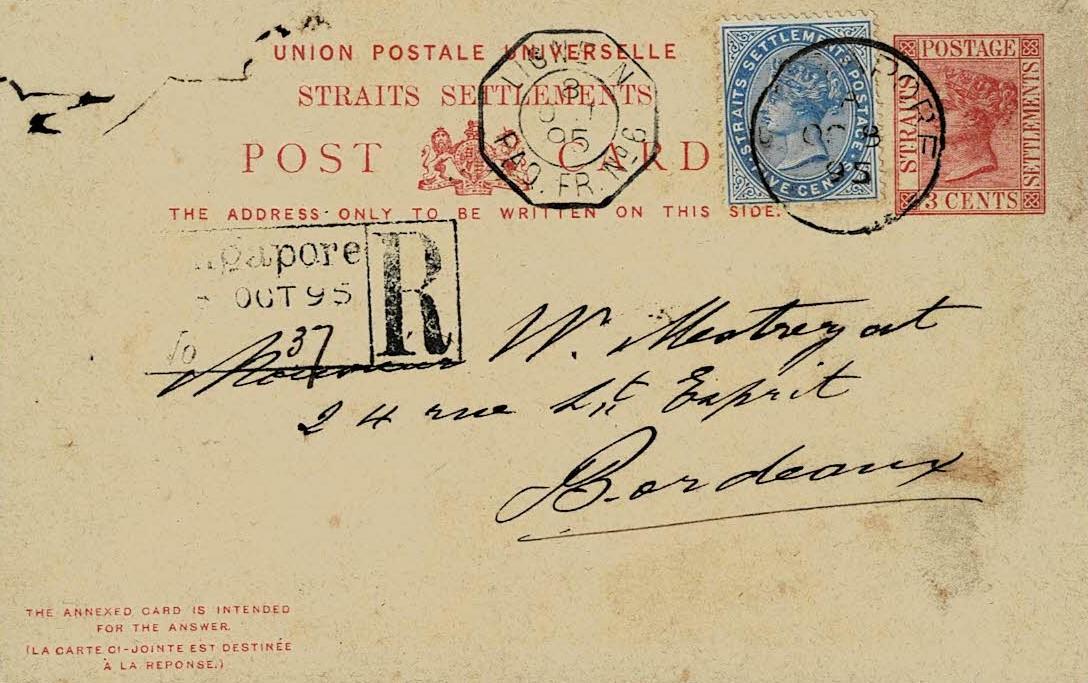 UNION POSTALE UNIVERSELLE
STRAITS SETTLEMENTS
POST CARD
THE ADDRESS ONLY TO BE WRITTEN ON THIS SIDE.
LIGNE N
8
95
PAQ. FR. No 6
STRAITS SETTLEMENTS POSTAGE
CENTS
PORE
OC 8
95
POSTAGE
STRAITS
SETTLEMENTS
3 CENTS
gapore
OCT 95
R
No 37
Monsieur W. Mestrezat
24 rue St Esprit
Bordeaux
THE ANNEXED CARD IS INTENDED
FOR THE ANSWER.
(LA CARTE CI-JOINTE EST DESTINÉE
À LA REPONSE.)